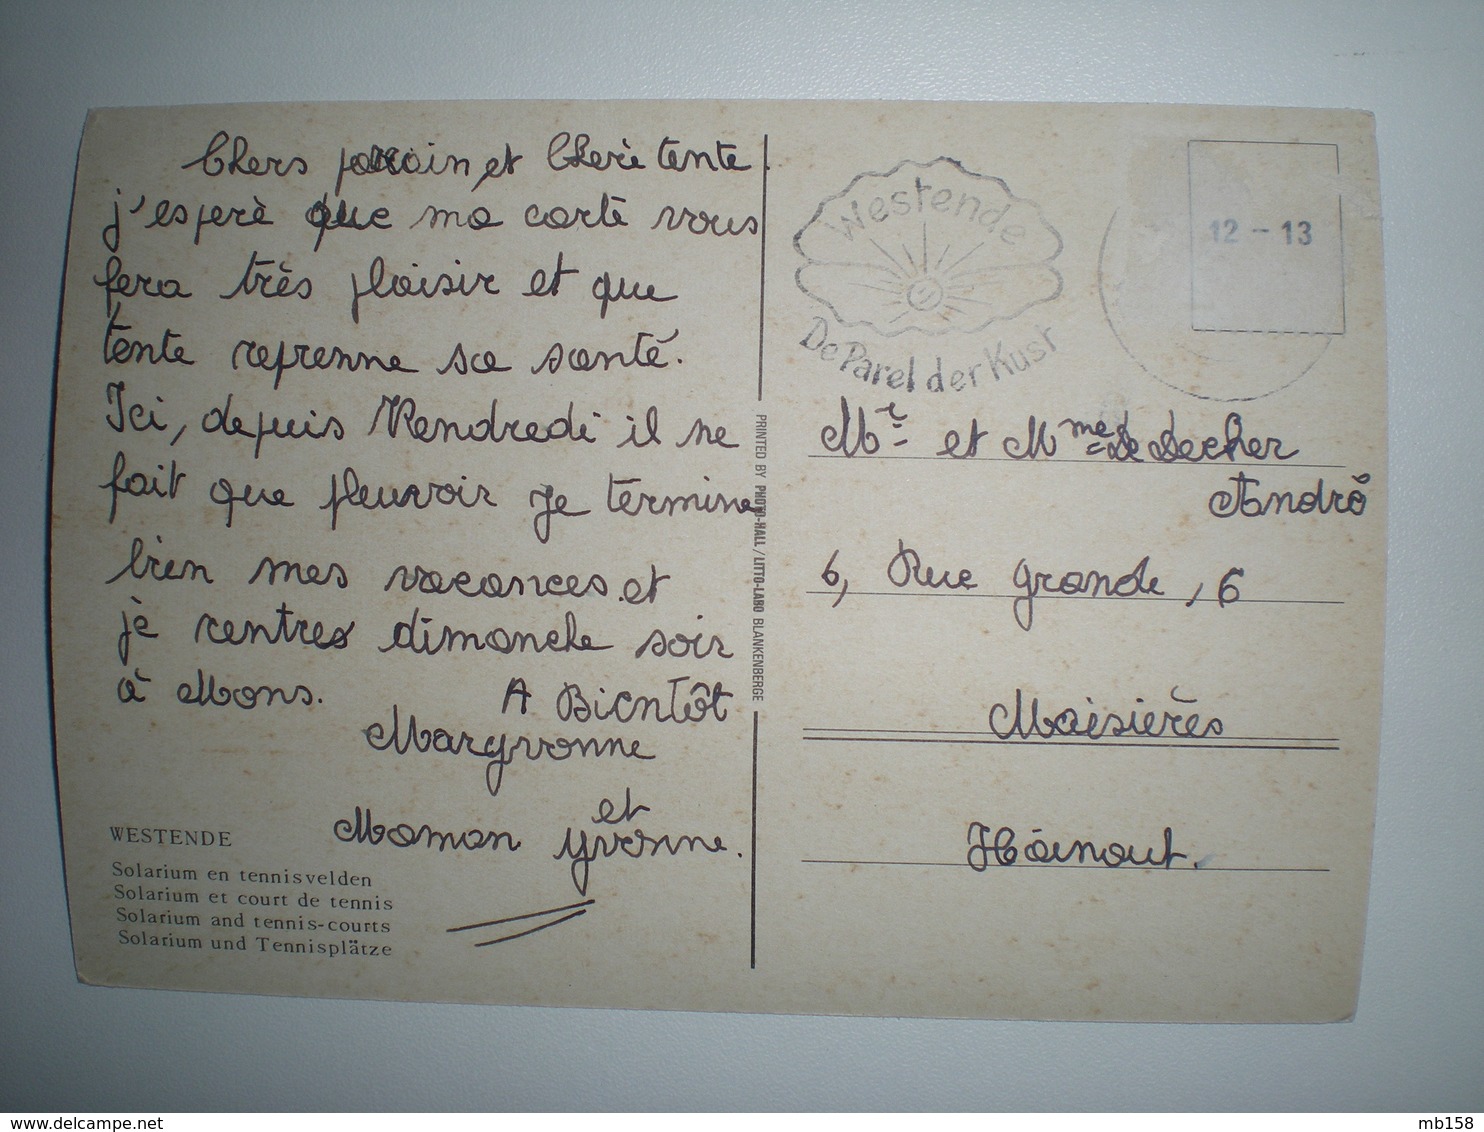 Chers parrain et Cherie tente
j'esperè que ma cartè vous
fera très plaisir et que
tente reprenne sa santé.
Ici, depuis Vendredi il ne
fait que pleuvoir je termine
bien mes vacances et
je rentres dimanche soir
à Mons. A Bientôt
Margvonne
et
Maman Yvonne.
WESTENDE
Solarium en tennisvelden
Solarium et court de tennis
Solarium and tennis-courts
Solarium und Tennisplätze
PRINTED BY PHOTO-HALL / LITTO-LABO BLANKENBERGE
Westende
De Parel der Kust
12 - 13
Mr et Mme De Decker
André
6, Rue grande, 6
Maisières
Hainaut.
mb158